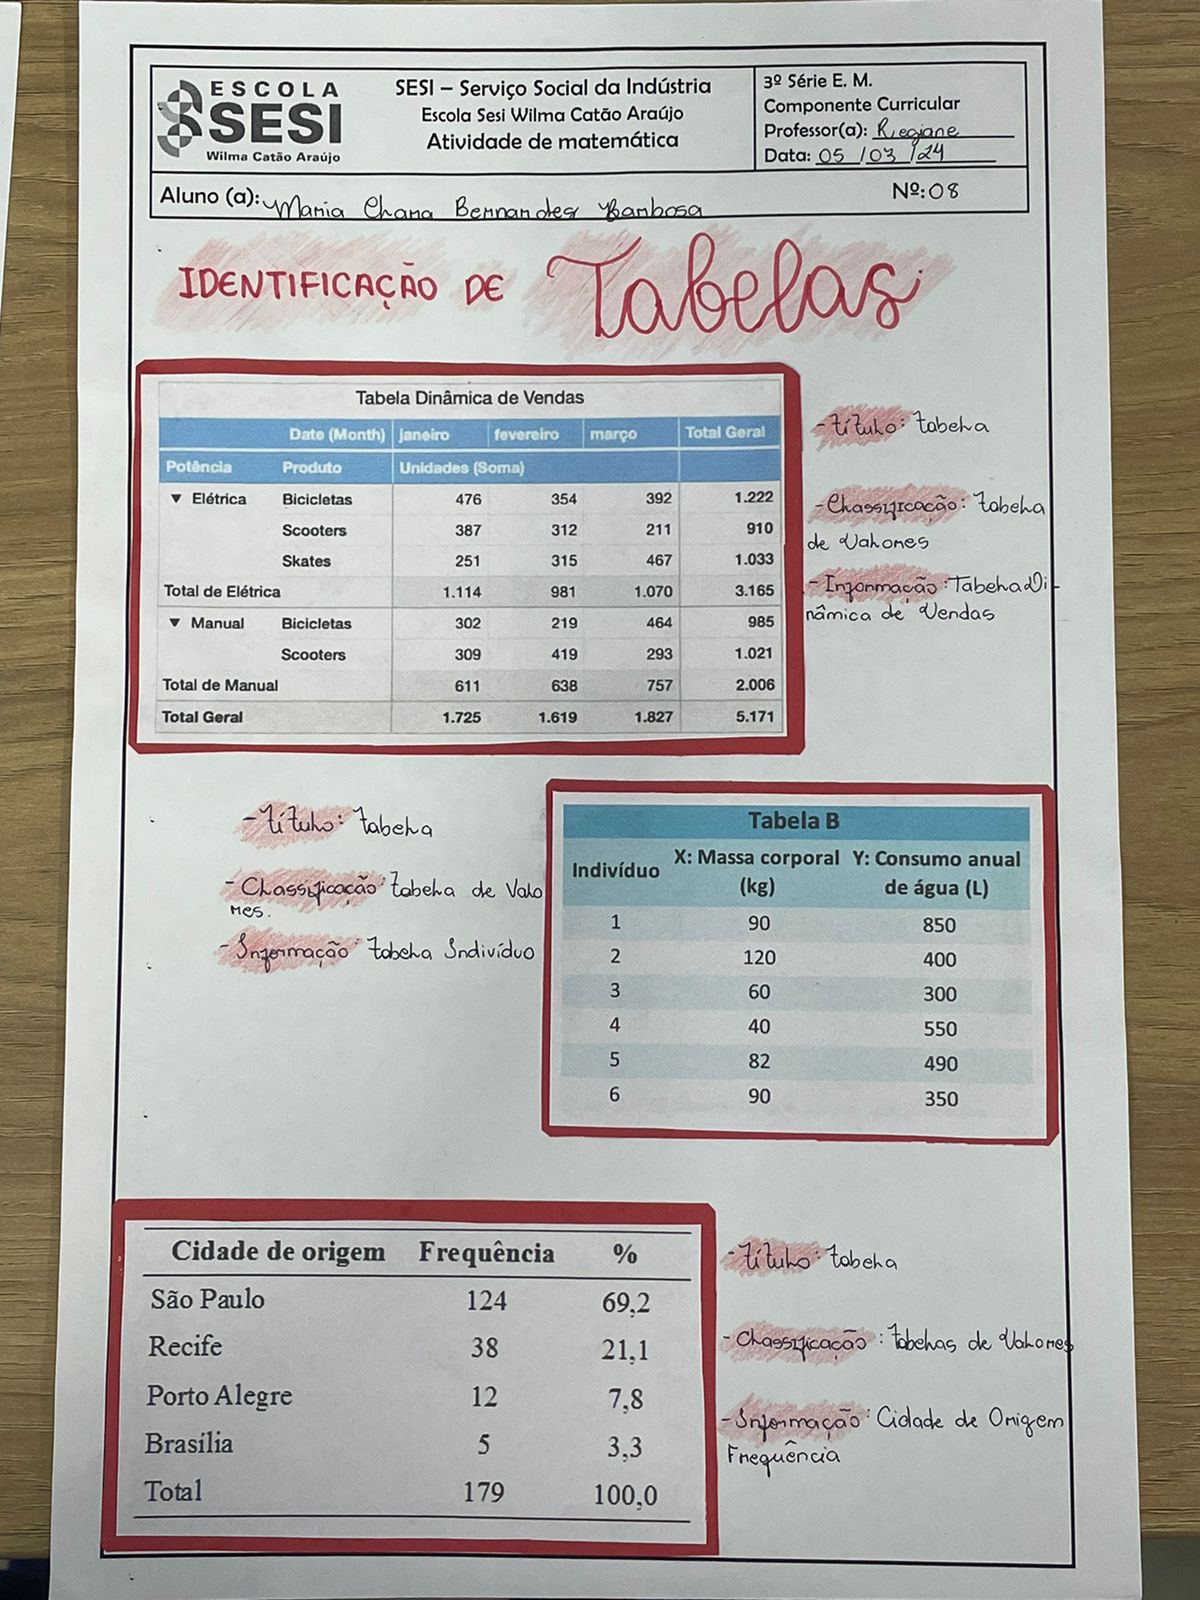 ESCOLA
SESI
Wilma Catão Araújo
SESI – Serviço Social da Indústria
Escola Sesi Wilma Catão Araújo
Atividade de matemática
3º Série E. M.
Componente Curricular
Professor(a): Regiane
Data: 05/03/24
Aluno (a): Maria Clara Bernardes Barbosa
Nº: 08
IDENTIFICAÇÃO DE Tabelas
Tabela Dinâmica de Vendas
Date (Month) janeiro fevereiro março Total Geral
Potência Produto Unidades (Soma)
▼ Elétrica Bicicletas 476 354 392 1.222
Scooters 387 312 211 910
Skates 251 315 467 1.033
Total de Elétrica 1.114 981 1.070 3.165
▼ Manual Bicicletas 302 219 464 985
Scooters 309 419 293 1.021
Total de Manual 611 638 757 2.006
Total Geral 1.725 1.619 1.827 5.171
- Título: tabela
- Classificação: tabela
de Valores
- Informação: Tabela Di-
nâmica de Vendas
- Título: tabela
- Classificação: tabela de Valo
res.
- Informação: tabela Indivíduo
Tabela B
Indivíduo X: Massa corporal (kg) Y: Consumo anual de água (L)
1 90 850
2 120 400
3 60 300
4 40 550
5 82 490
6 90 350
Cidade de origem Frequência %
São Paulo 124 69,2
Recife 38 21,1
Porto Alegre 12 7,8
Brasília 5 3,3
Total 179 100,0
- Título: tabela
- Classificação: tabelas de Valores
- Informação: Cidade de Origem
Frequência